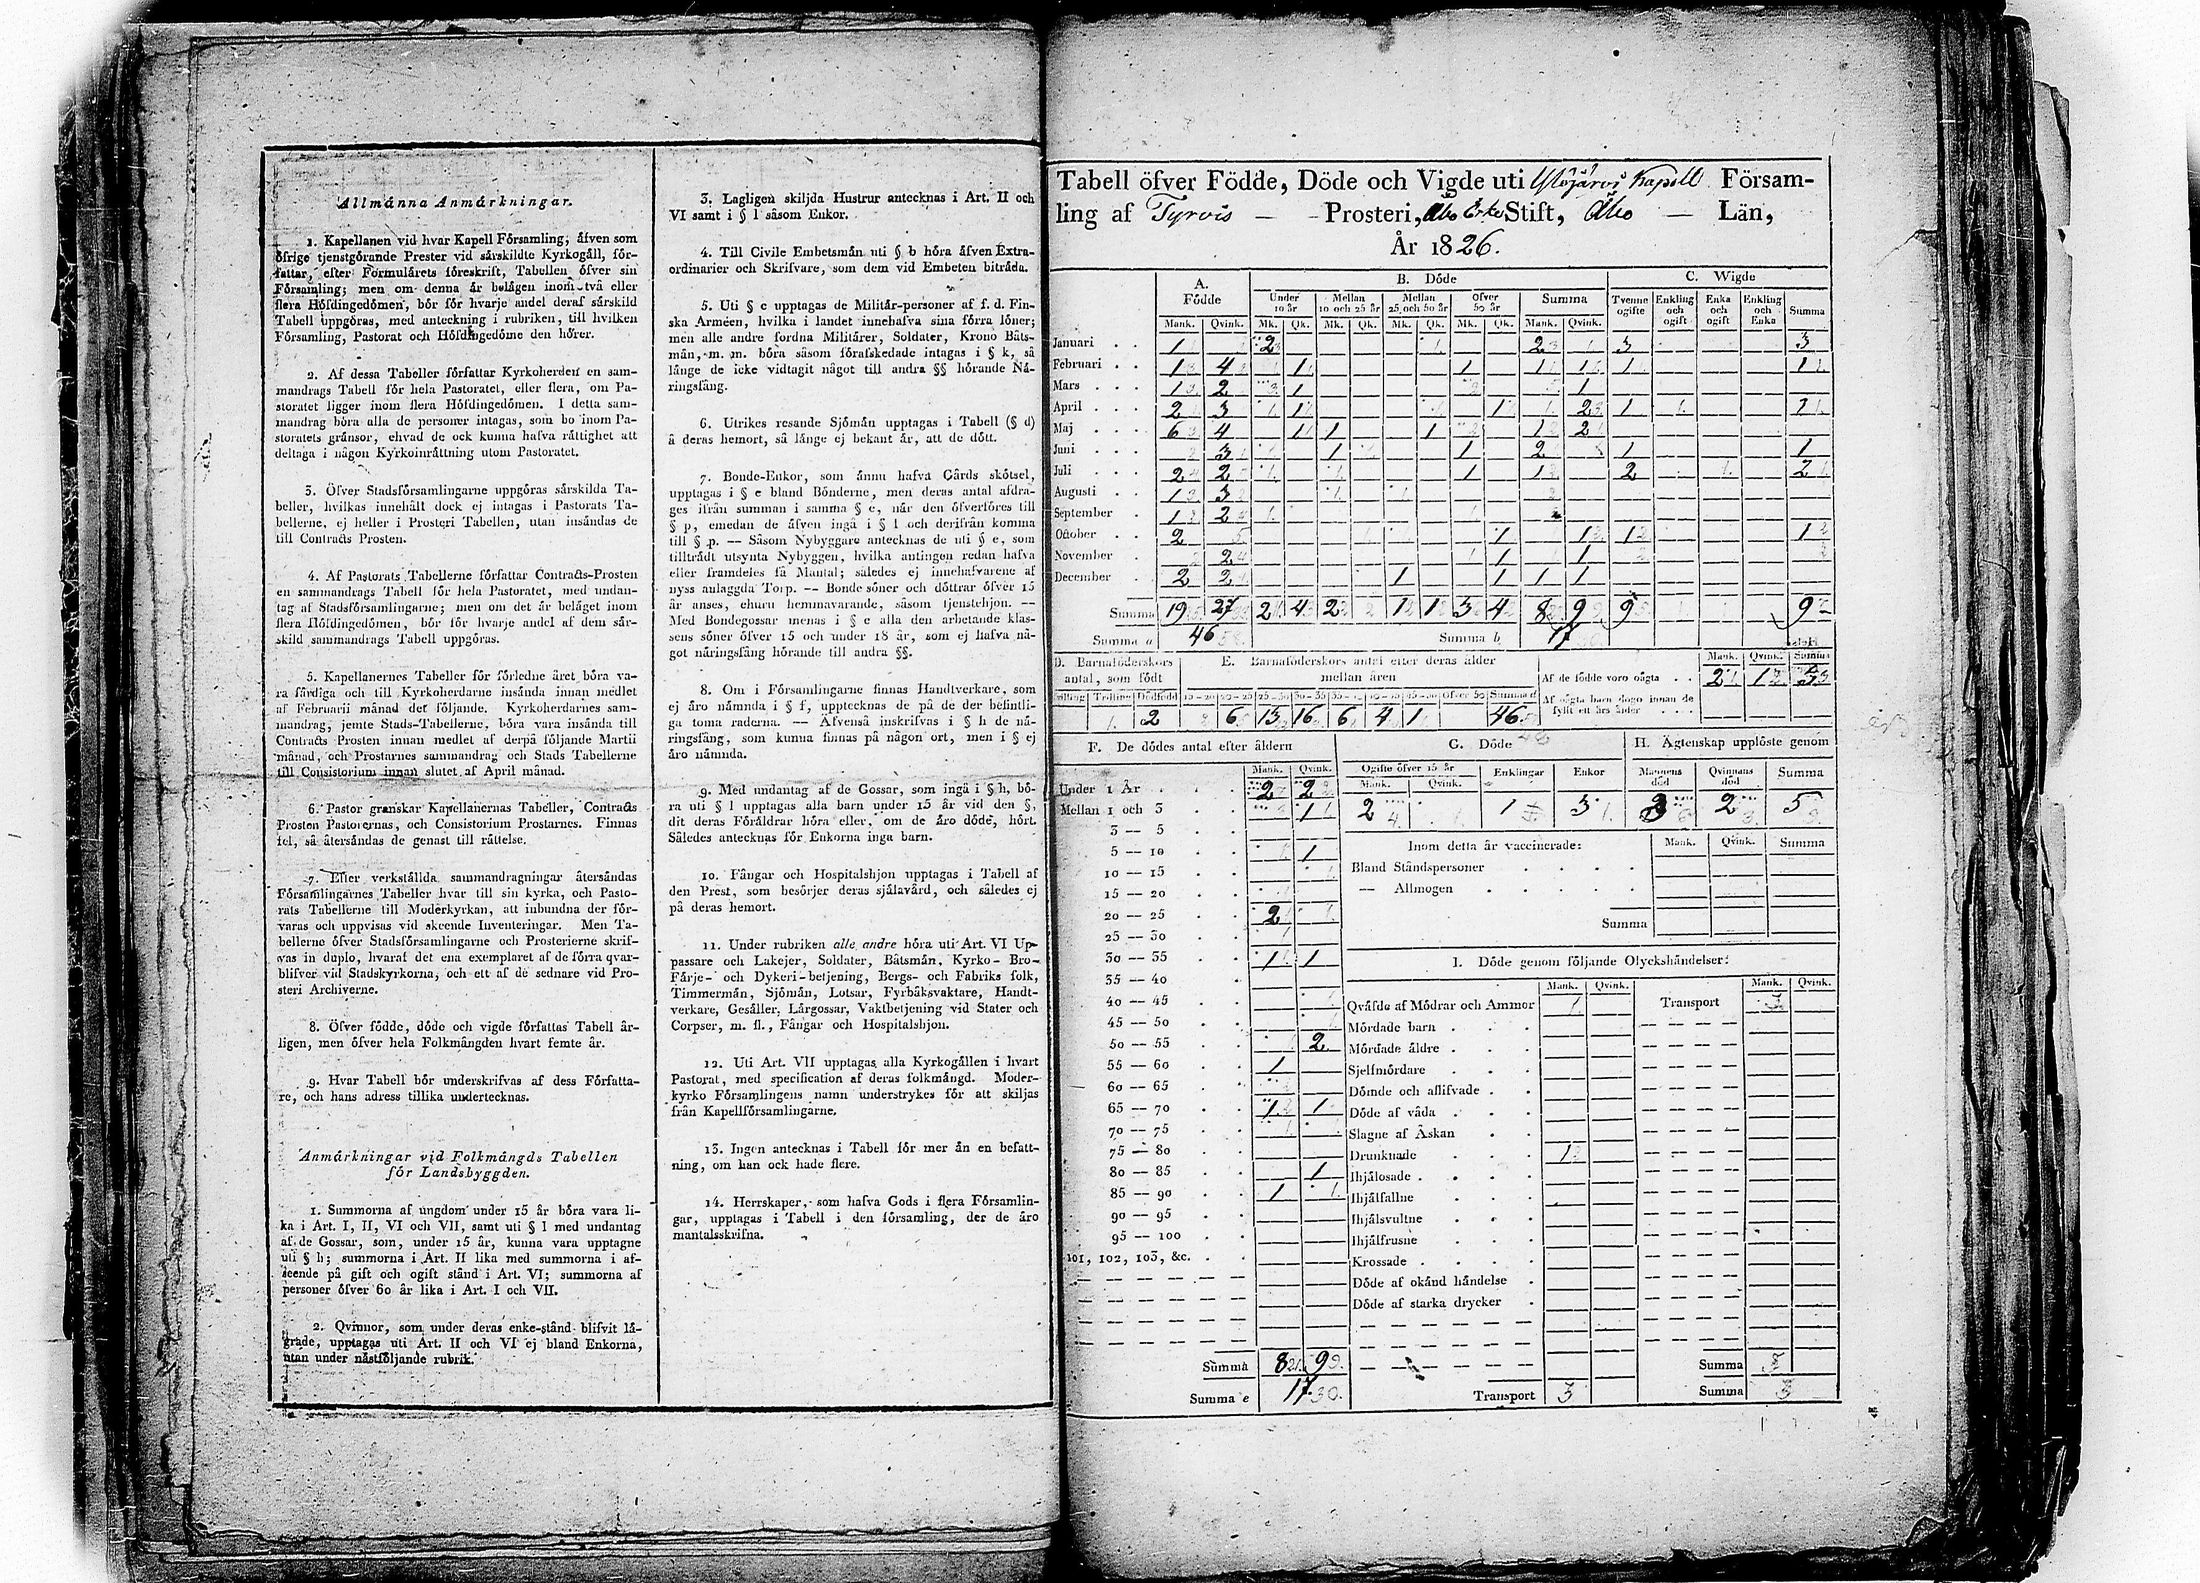 Allmänna Anmärkningar.
1. Kapellanen vid hvar Kapell Församling, äfven som
öfrige tjenstgörande Prester vid särskildte Kyrkogäll, för-
fattar, efter Formulärets föreskrift, Tabellen öfver sin
Församling; men om denna är belägen inom två eller
flera Höfdingedömen, bör för hvarje andel deraf särskild
Tabell uppgöras, med anteckning i rubriken, till hvilken
Församling, Pastorat och Höfdingedöme den hörer.
2. Af dessa Tabeller författar Kyrkoherden en sam-
mandrags Tabell för hela Pastoratet, eller flera, om Pa-
storatet ligger inom flera Höfdingedömen. I detta sam-
mandrag böra alla de personer intagas, som bo inom Pa-
storatets gränsor, ehvad de ock kunna hafva rättighet att
deltaga i någon Kyrkoinrättning utom Pastoratet.
3. Öfver Stadsförsamlingarne uppgöras särskilda Ta-
beller, hvilkas innehåll dock ej intagas i Pastorats Ta-
bellerne, ej heller i Prosteri Tabellen, utan insändas de
till Contracts Prosten.
4. Af Pastorats Tabellerne författar Contracts-Prosten
en sammandrags Tabell för hela Pastoratet, med undan-
tag af Stadsförsamlingarne; men om det är beläget inom
flera Höfdingedömen, bör för hvarje andel af dem sär-
skild sammandrags Tabell uppgöras.
5. Kapellanernes Tabeller för förledne året böra va-
ra färdiga och till Kyrkoherdarne insända innan medlet
af Februarii månad det följande. Kyrkoherdarnes sam-
mandrag, jemte Stads-Tabellerne, böra vara insända till
Contracts Prosten innan medlet af derpå följande Martii
månad, och Prostarnes sammandrag och Stads Tabellerne
till Consistorium innan slutet af April månad.
6. Pastor granskar Kapellanernas Tabeller, Contracts
Prosten Pastorernas, och Consistorium Prostarnes. Finnas
fel, så återsändas de genast till rättelse.
7. Efter verkställda sammandragningar återsändas
Församlingarnes Tabeller hvar till sin kyrka, och Pasto-
rats Tabellerne till Moderkyrkan, att inbundna der för-
varas och uppvisas vid skeende Inventeringar. Men Ta-
bellerne öfver Stadsförsamlingarne och Prosterierne skrif-
vas in duplo, hvaraf det ena exemplaret af de förra qvar-
blifver vid Stadskyrkorna, och ett af de sednare vid Pro-
steri Archiverne.
8. Öfver födde, döde och vigde författas Tabell år-
ligen, men öfver hela Folkmängden hvart femte år.
9. Hvar Tabell bör underskrifvas af dess Författa-
re, och hans adress tillika undertecknas.
Anmärkningar vid Folkmängds Tabellen
för Landsbyggden.
1. Summorna af ungdom under 15 år böra vara li-
ka i Art. I, II, VI och VII, samt uti § l med undantag
af de Gossar, som, under 15 år, kunna vara upptagne
uti § h; summorna i Art. II lika med summorna i af-
seende på gift och ogift stånd i Art. VI; summorna af
personer öfver 60 år lika i Art. I och VII.
2. Qvinnor, som under deras enke-stånd blifvit lä-
grade, upptagas uti Art. II och VI ej bland Enkorna,
utan under nästföljande rubrik.
3. Lagligen skiljda Hustrur antecknas i Art. II och
VI samt i § l såsom Enkor.
4. Till Civile Embetsmän uti § b höra äfven Extra-
ordinarier och Skrifvare, som dem vid Embeten biträda.
5. Uti § c upptagas de Militär-personer af f. d. Fin-
ska Arméen, hvilka i landet innehafva sina förra löner;
men alle andre fordna Militärer, Soldater, Krono Båts-
män, m. m. böra såsom förafskedade intagas i § k, så
länge de icke vidtagit något till andra §§ hörande Nä-
ringsfång.
6. Utrikes resande Sjömän upptagas i Tabell (§ d)
å deras hemort, så länge ej bekant är, att de dött.
7. Bonde-Enkor, som ännu hafva Gårds skötsel,
upptagas i § e bland Bönderne, men deras antal afdra-
ges ifrån summan i samma § e, när den öfverföres till
§ p, emedan de äfven ingå i § l och derifrån komma
till § p. — Såsom Nybyggare antecknas de uti § e, som
tillträdt utsynta Nybyggen, hvilka antingen redan hafva
eller framdeles få Mantal; således ej innehafvarene af
nyss anlaggda Torp. — Bonde söner och döttrar öfver 15
år anses, ehuru hemmavarande, såsom tjenstehjon. —
Med Bondegossar menas i § e alla den arbetande klas-
sens söner öfver 15 och under 18 år, som ej hafva nå-
got näringsfång hörande till andra §§.
8. Om i Församlingarne finnas Handtverkare, som
ej äro nämnda i § f, upptecknas de på de der befintli-
ga toma raderna. — Äfvenså inskrifvas i § h de nä-
ringsfång, som kunna finnas på någon ort, men i § ej
äro nämnda.
9. Med undantag af de Gossar, som ingå i § h, bö-
ra uti § l upptagas alla barn under 15 år vid den §,
dit deras Föräldrar höra eller, om de äro döde, hört.
Således antecknas för Enkorna inga barn.
10. Fångar och Hospitalshjon upptagas i Tabell af
den Prest, som besörjer deras själavård, och således ej
på deras hemort.
11. Under rubriken alle andre höra uti Art. VI Up-
passare och Lakejer, Soldater, Båtsmän, Kyrko- Bro-
Färje- och Dykeri-betjening, Bergs- och Fabriks folk,
Timmermän, Sjömän, Lotsar, Fyrbåksvaktare, Handt-
verkare, Gesäller, Lärgossar, Vaktbetjening vid Stater och
Corpser, m. fl., Fångar och Hospitalshjon.
12. Uti Art. VII upptagas alla Kyrkogällen i hvart
Pastorat, med specification af deras folkmängd. Moder-
kyrko Församlingens namn understrykes för att skiljas
från Kapellförsamlingarne.
13. Ingen antecknas i Tabell för mer än en befatt-
ning, om han ock hade flere.
14. Herrskaper, som hafva Gods i flera Församlin-
gar, upptagas i Tabell i den församling, der de äro
mantalsskrifna.
Tabell öfver Födde, Döde och Vigde uti Ylöjärvi Kapell Försam-
ling af Tyrvis — Prosteri, Åbo Erke Stift, Åbo — Län,
År 1826.
A. Födde B. Döde C. Wigde
Under 10 år Mellan 10 och 25 år Mellan 25 och 50 år Öfver 50 år Summa Tvenne ogifte Enkling och ogift Enka och ogift Enkling och Enka Summa
Mank. Qvink. Mk. Qk. Mk. Qk. Mk. Qk. Mk. Qk. Mank. Qvink.
Januari 1 2 2 3 3
Februari 1 4 1 1 1 1 1 1
Mars 1 2 1 1
April 2 3 1 1 2 1 1
Maj 6 4 1 1 1 1 2
Juni 3 1 1 2 1 1
Juli 2 2 1 1 2 2
Augusti 1 3
September 1 2
October 2 1 1 1 1
November 2 1 1
December 2 2 1 1 1 1
Summa 19 27 2 4 2 1 1 3 4 8 9 9 9
Summa a 46 Summa b 17
D. Barnaföderskors antal, som födt
Tvilling Trilling Dödfödd
2
E. Barnaföderskors antal efter deras ålder mellan åren
15—20 20—25 25—30 30—35 35—40 40—45 45—50 Öfver 50 Summa d
6 13 16 6 4 1 46
Mank. Qvink. Summa
Af de födde voro oägta 2 1 3
Af oägta barn dogo innan de fyllt ett års ålder
F. De dödes antal efter åldern
Mank. Qvink.
Under 1 År 2 2
Mellan 1 och 3 1
3 — 5
5 — 10 1
10 — 15
15 — 20
20 — 25 2
25 — 30
30 — 35 1 1
35 — 40
40 — 45
45 — 50
50 — 55 2
55 — 60 1
60 — 65
65 — 70 1 1
70 — 75
75 — 80
80 — 85 1
85 — 90 1
90 — 95
95 — 100
101, 102, 103, &c.
Summa 8 9
Summa e 17
G. Döde
Ogifte öfver 15 år Enklingar Enkor
Mank. Qvink.
2 1 3
H. Ägtenskap upplöste genom
Mannens död Qvinnans död Summa
3 2 5
Inom detta år vaccinerade: Mank. Qvink. Summa
Bland Ståndspersoner
— Allmogen
Summa
I. Döde genom följande Olyckshändelser:
Mank. Qvink. Mank. Qvink.
Qväfde af Mödrar och Ammor 1 Transport 3
Mördade barn
Mördade äldre
Sjelfmördare
Dömde och aflifvade
Döde af våda
Slagne af Åskan
Drunknade 1
Ihjälosade
Ihjälfallne
Ihjälsvultne
Ihjälfrusne
Krossade
Döde af okänd händelse
Döde af starka drycker
Summa 3
Transport 3 Summa 3